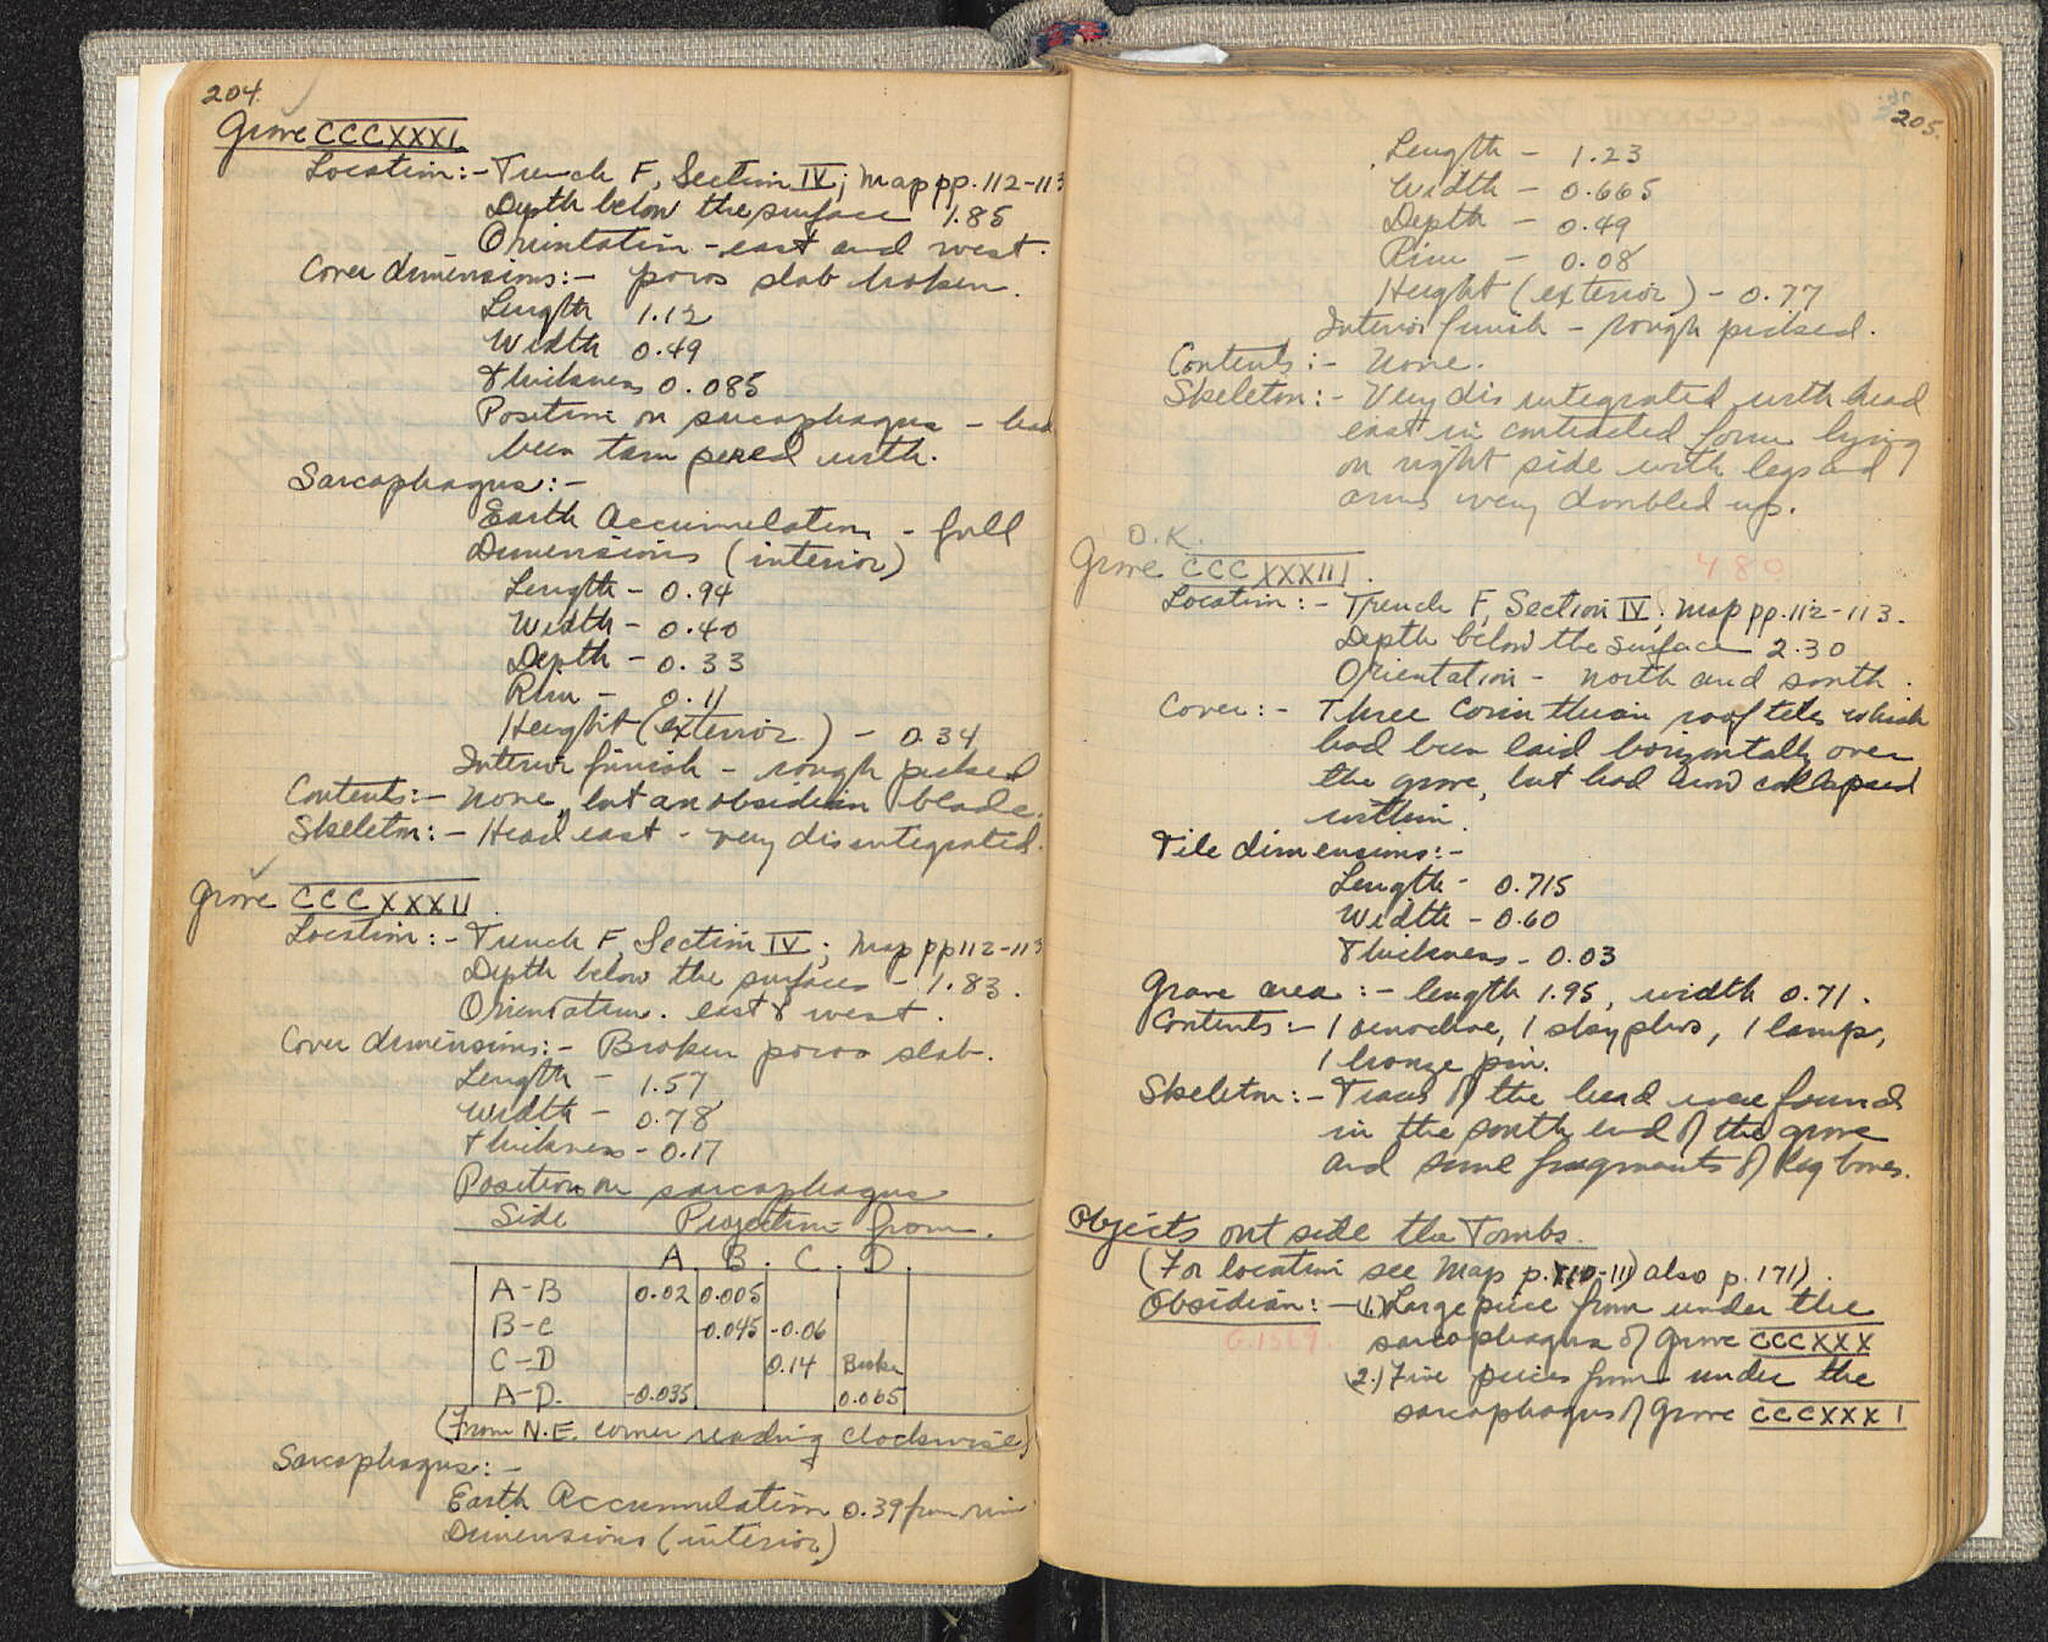 204.
Grave CCCXXXI.
Location:- Trench F, Section IV; Map pp. 112-113
Depth below the surface 1.85
Orientation - east and west.
Cover dimensions:- poros slab broken.
Length 1.12
Width 0.49
Thickness 0.085
Position on sarcophagus - had
been tampered with.
Sarcophagus:-
Earth Accumulation - full
Dimensions (interior)
Length - 0.94
Width - 0.40
Depth - 0.33
Rim - 0.11
Height (exterior) - 0.34
Interior finish - rough picked
Contents:- None, but an obsidian blade.
Skeleton:- Head east - very disintegrated.
Grave CCCXXXII.
Location:- Trench F, Section IV; Map pp 112-113
Depth below the surface - 1.83.
Orientation. east & west.
Cover dimensions:- Broken poros slab.
Length - 1.57
Width - 0.78
Thickness - 0.17
Position on sarcophagus
Side Projection from.
A. B. C. D.
A-B 0.02 0.005
B-C -0.045 -0.06
C-D 0.14 Broken
A-D. -0.035 0.065
(From N.E. corner reading clockwise)
Sarcophagus:-
Earth Accumulation 0.39 from rim
Dimensions (interior)
205.
Length - 1.23
Width - 0.665
Depth - 0.49
Rim - 0.08
Height (exterior) - 0.77
Interior finish - rough picked.
Contents:- None.
Skeleton:- Very disintegrated with head
east in contracted form lying
on right side with legs and
arms very doubled up.
O.K.
Grave CCCXXXIII. 480
Location:- Trench F, Section IV; Map pp. 112-113.
Depth below the surface 2.30
Orientation - north and south.
Cover:- Three Corinthian roof tiles which
had been laid horizontally over
the grave, but had now collapsed
within.
Tile dimensions:-
Length - 0.715
Width - 0.60
Thickness - 0.03
Grave area:- length 1.95, width 0.71.
Contents:- 1 oenochoe, 1 skyphos, 1 lamp,
1 bronze pin.
Skeleton:- Traces of the head were found
in the south end of the grave
and some fragments of leg bones.
Objects outside the Tombs.
(For location see Map p. 110-111) also p. 171).
Obsidian:- (1.) Large piece from under the
G.1369. sarcophagus of Grave CCCXXX
(2.) Five pieces from under the
sarcophagus of Grave CCCXXXI